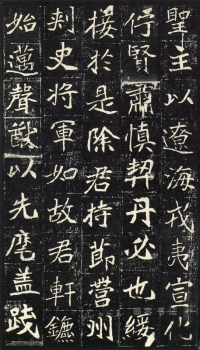 聖主以遼海戎夷宣化
佇賢肅慎契丹必也綏
接於是除君持節營州
刺史將軍如故君軒鑣
始邁聲猷以先麾盖踐